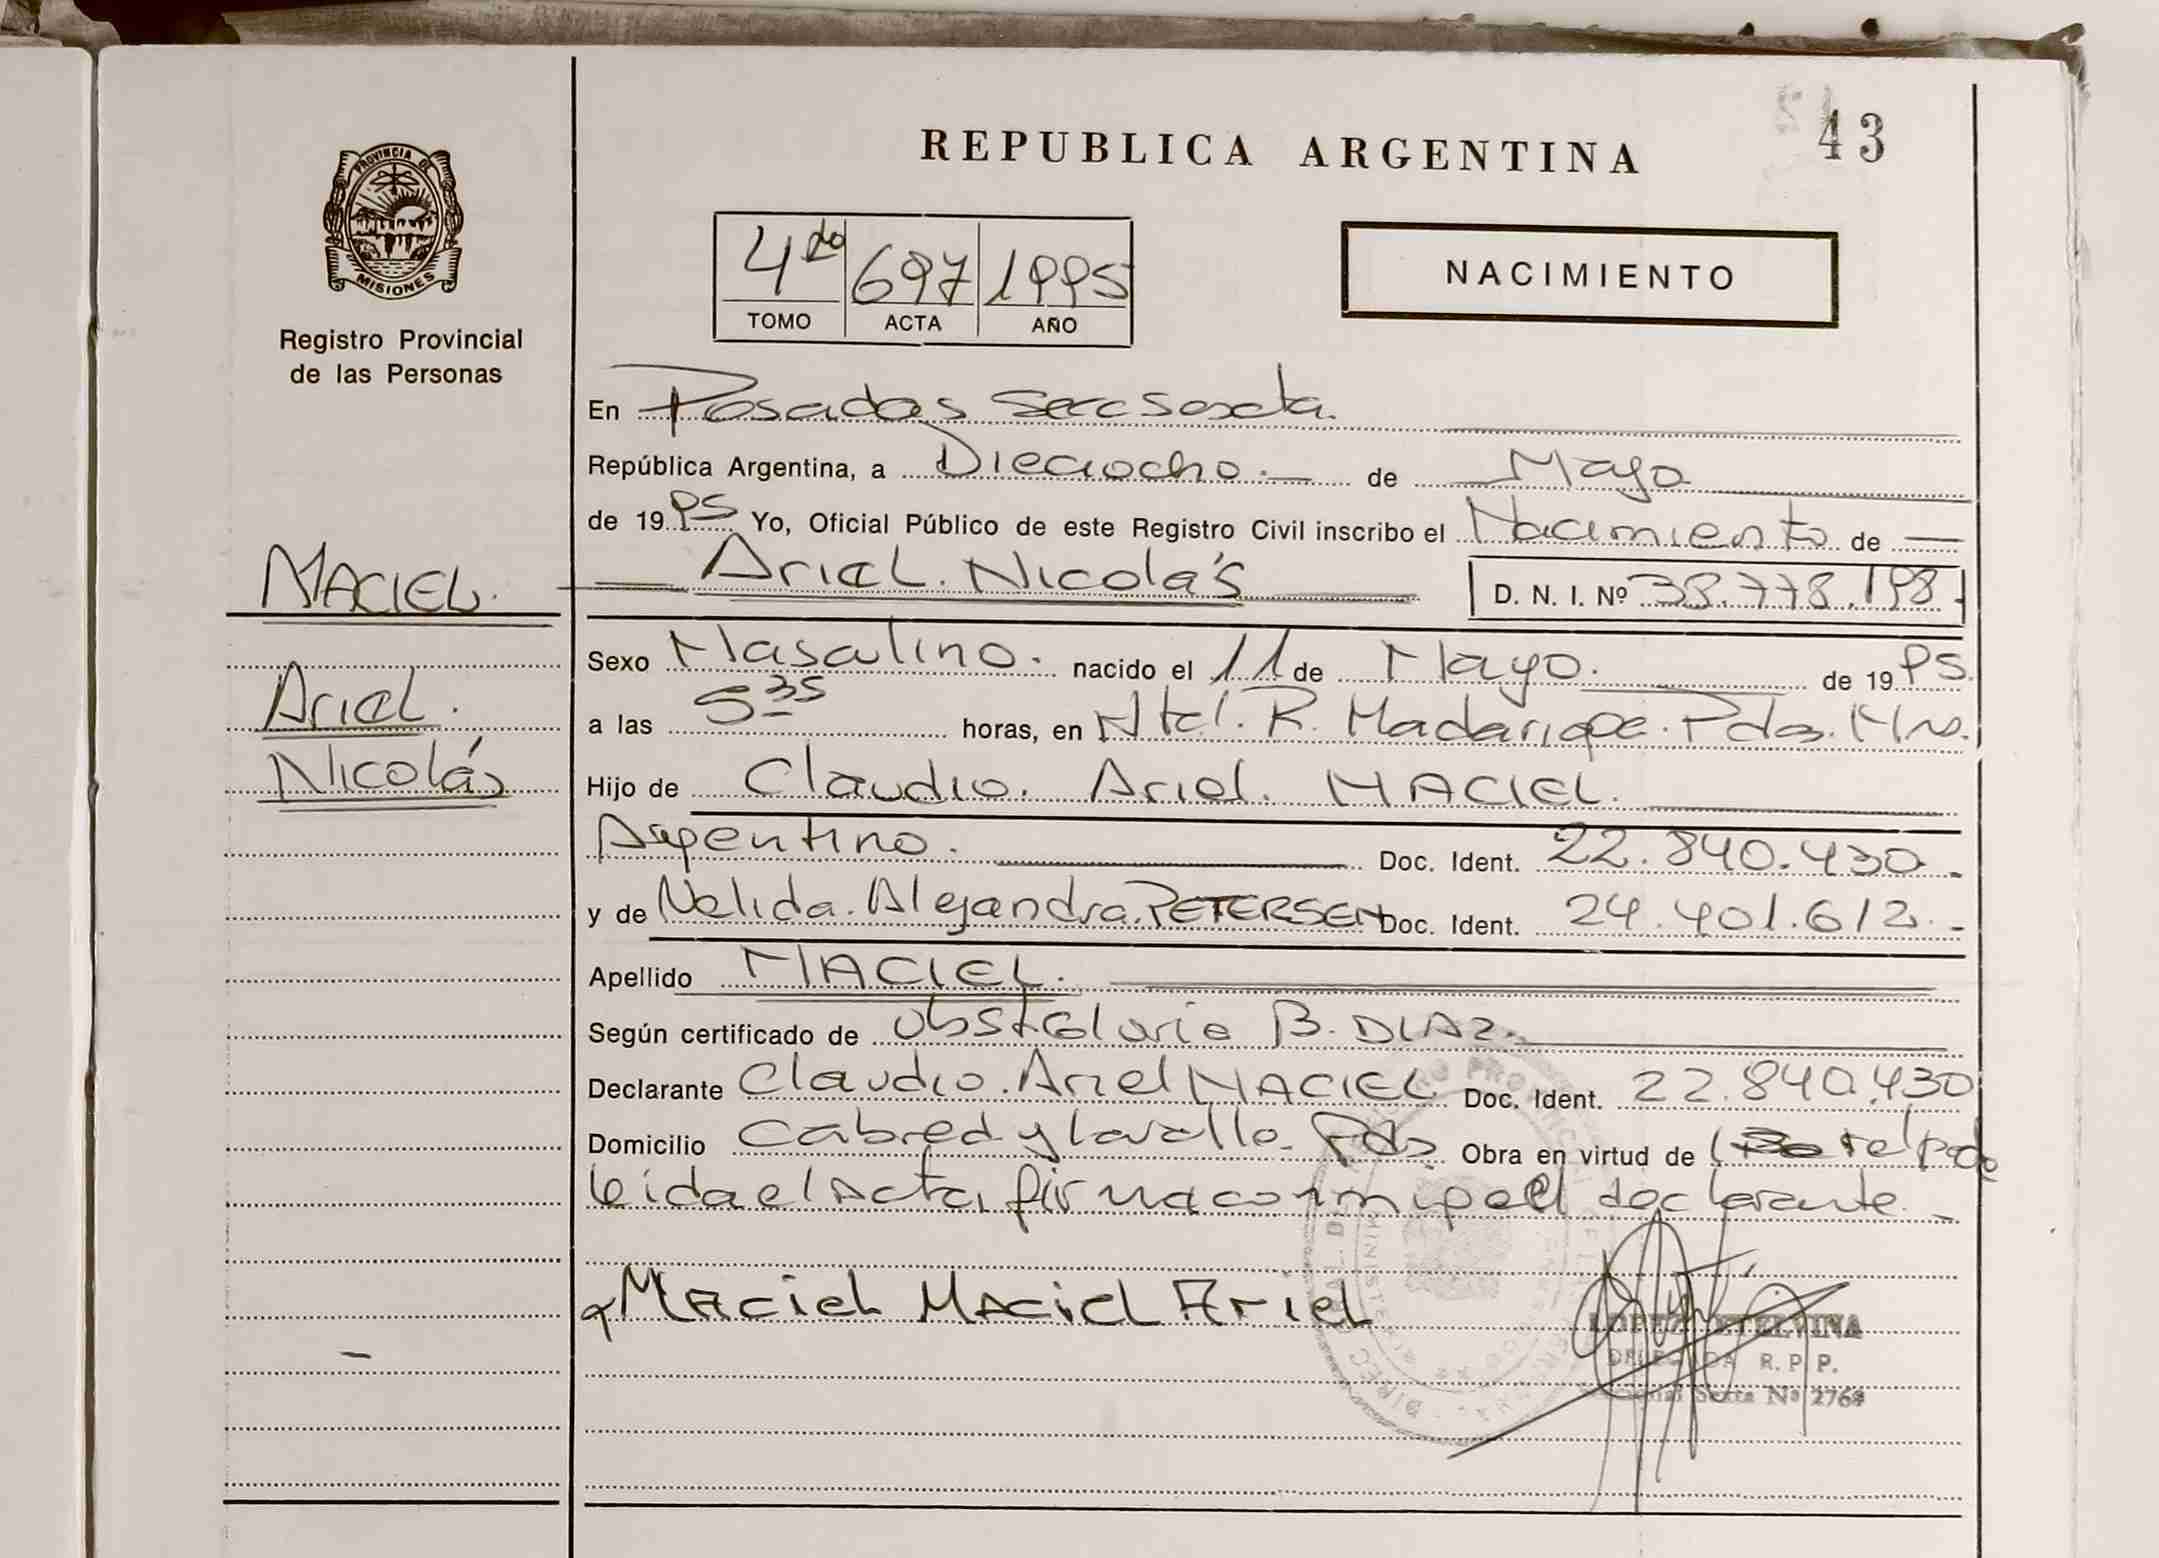 43
REPUBLICA ARGENTINA
PROVINCIA DE
MISIONES
Registro Provincial
de las Personas
4do 697 1995
TOMO ACTA AÑO
NACIMIENTO
En Posadas Secc Sexta.
República Argentina, a Dieciocho.- de Mayo
de 1995 Yo, Oficial Público de este Registro Civil inscribo el Nacimiento de
Ariel. Nicolás D. N. I. Nº 38.778.198.
MACIEL.
Ariel.
Nicolás
Sexo Masculino. nacido el 11 de Mayo. de 1995.
a las 5 35 horas, en Htal. R. Madariaga. Pdas. Mns.
Hijo de Claudio. Ariel. MACIEL.
Argentino. Doc. Ident. 22.840.430.-
y de Nelida. Alejandra. PETERSEN Doc. Ident. 24.401.612.-
Apellido MACIEL.
Según certificado de obstetricia B. DIAZ.
Declarante Claudio. Ariel MACIEL Doc. Ident. 22.840.430
Domicilio Cabred y Lavalle. Pdas Obra en virtud de
leida el Acta, firma conmigo el declarante.-
Maciel Maciel Ariel
LOPEZ ETELVINA
DELEGADA R. P. P.
Sexta Nº 2764